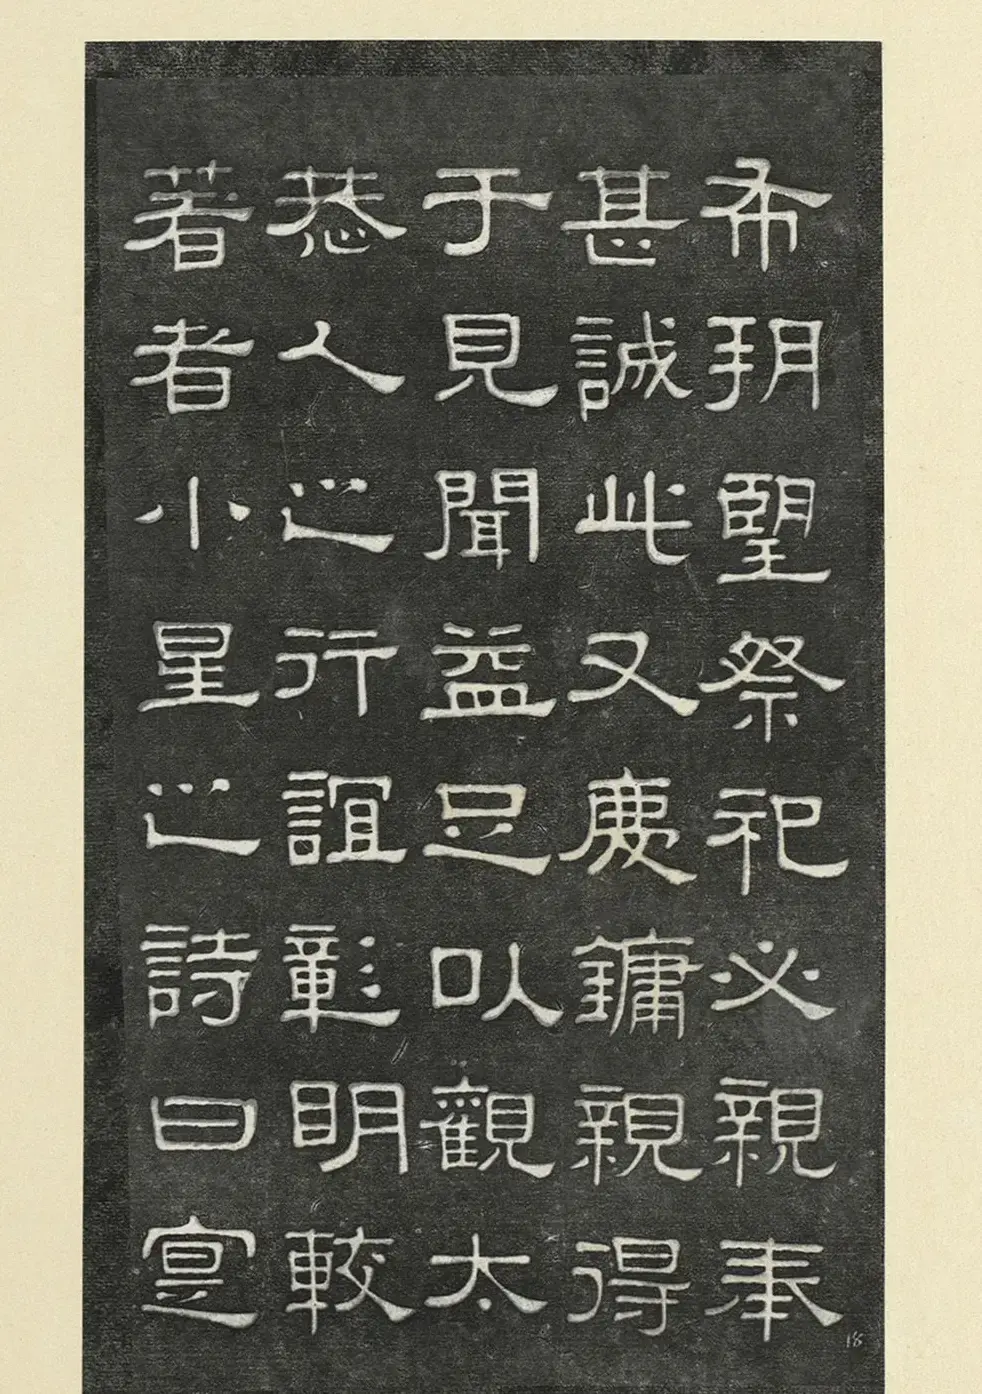 布朔望祭祀必親奉
甚誠此又慶鏞親得
于見聞益足以觀太
恭人之行誼彰明較
著者小星之詩曰寔
18